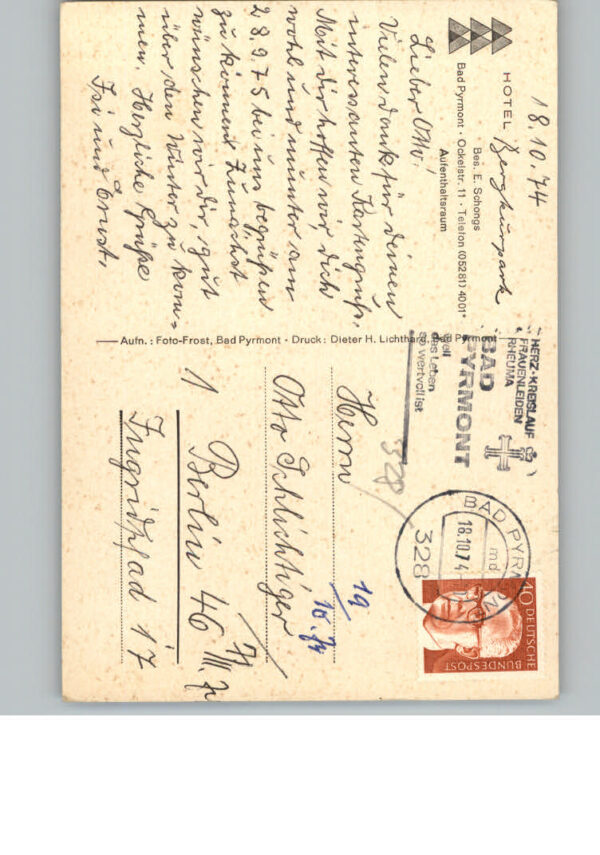 18.10.74
HOTEL Bergkurpark
Bes. E. Schongs
Bad Pyrmont · Ockelstr. 11 · Telefon (05281) 4001
Aufenthaltsraum
Lieber Otto,
Vielen Dank für deinen
interessanten Kartengruß.
Mit dir hoffen wir, dich
wohl und munter am
28.9.75 bei uns begrüßen
zu können. Zunächst
wünschen wir dir, gut
über den Winter zu kom=
men. Herzliche Grüße
Isi und Ernst.
Aufn.: Foto-Frost, Bad Pyrmont · Druck: Dieter H. Lichthard, Bad Pyrmont
HERZ-KREISLAUF
FRAUENLEIDEN
RHEUMA
BAD
PYRMONT
weil
das Leben
so wertvoll ist
BAD PYRMONT
18.10.74
md
328
40 DEUTSCHE
BUNDESPOST
328
Herrn
Otto Schlichtiger
1 Berlin 46
Ingridpfad 17
19
10.74